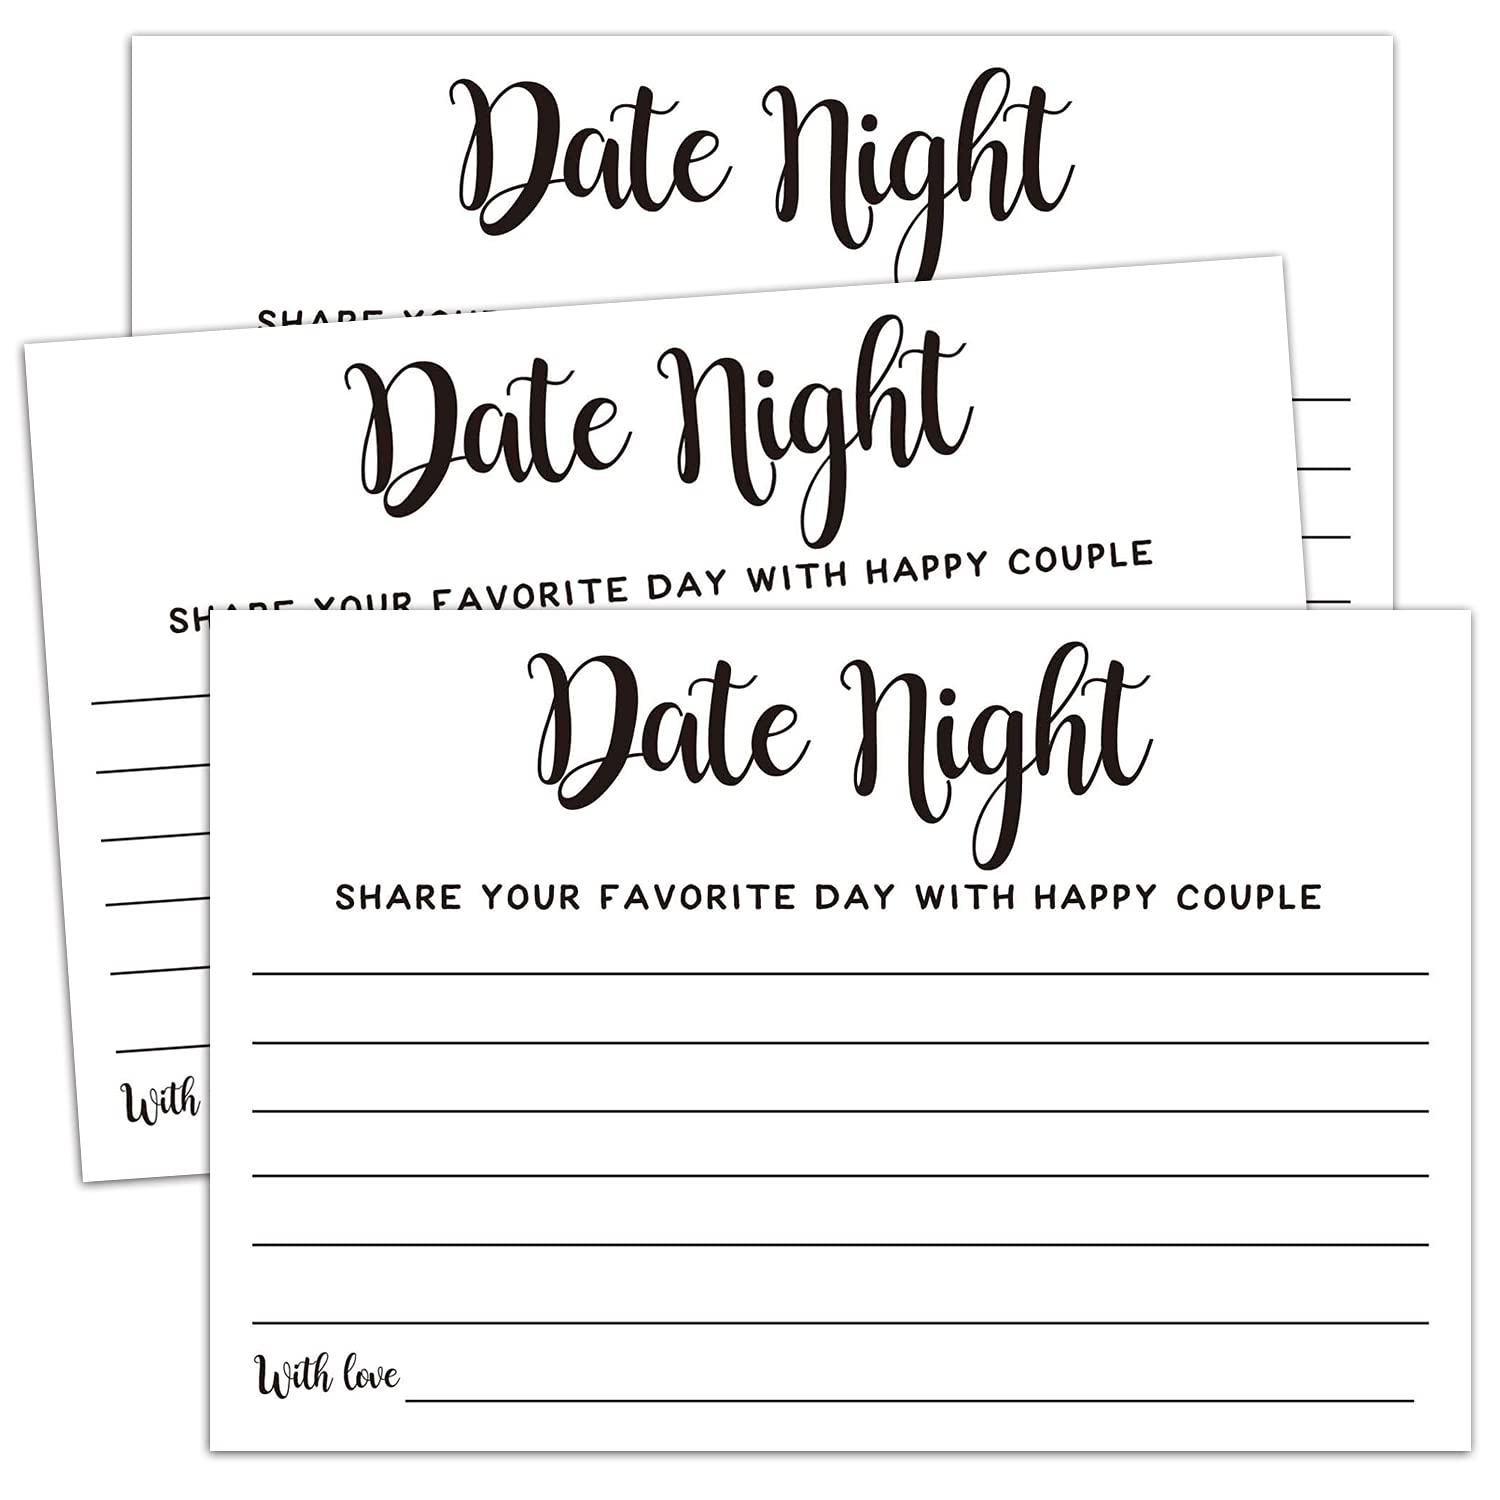 Date Night
SHARE YOUR
Date Night
SHARE YOUR FAVORITE DAY WITH HAPPY COUPLE
With
Date Night
SHARE YOUR FAVORITE DAY WITH HAPPY COUPLE
With love